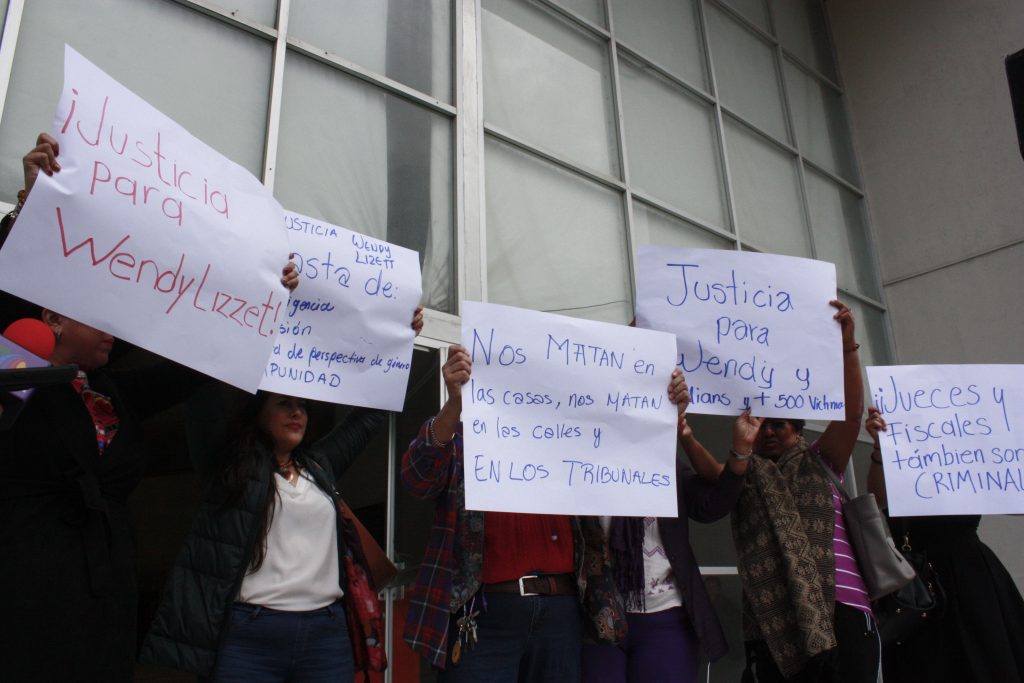 ¡Justicia
para
WendyLizzet!
USTICIA WENDY
LIZETT
asta de:
igencia
sión
d de perspectiva de género
PUNIDAD
Nos MATAN en
las casas, nos MATAN
en las calles y
EN LOS TRIBUNALES
Justicia
para
Wendy y
lians y + 500 Victima
¡Jueces y
Fiscales
támbien son
CRIMINAL